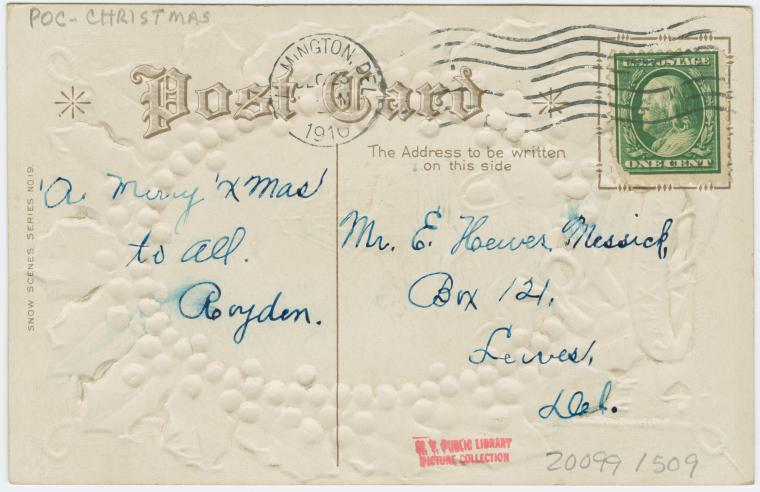 POC - CHRISTMAS
MINGTON, DEL.
1910
Post Card
U.S. POSTAGE
ONE CENT
The Address to be written
on this side
SNOW SCENES SERIES NO 19.
"A Merry 'XMas'
to all.
Royden.
Mr. E. Messick,
Box 121,
Lewes,
Del.
N. Y. PUBLIC LIBRARY
PICTURE COLLECTION
20099 1509